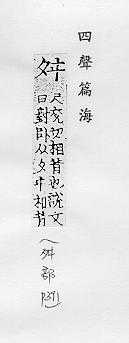 四聲篇海
舛
尺兖切相背也說文
曰對臥从夕㐄相背
（舛部